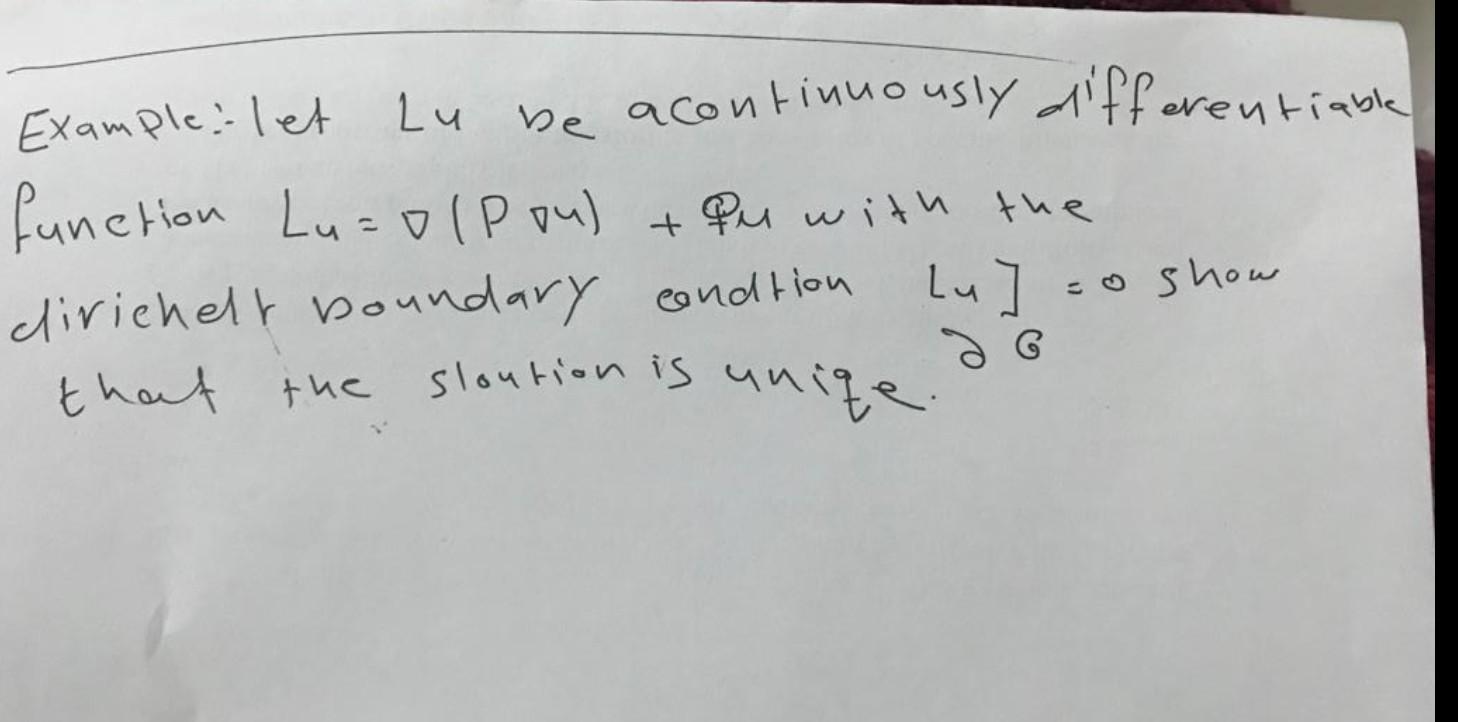 Example:- let Lu be acontinuously differentiable
function Lu = ∇(P ∇u) + qu with the
dirichelt boundary condtion Lu] = 0 show
∂G
that the sloution is uniqe.